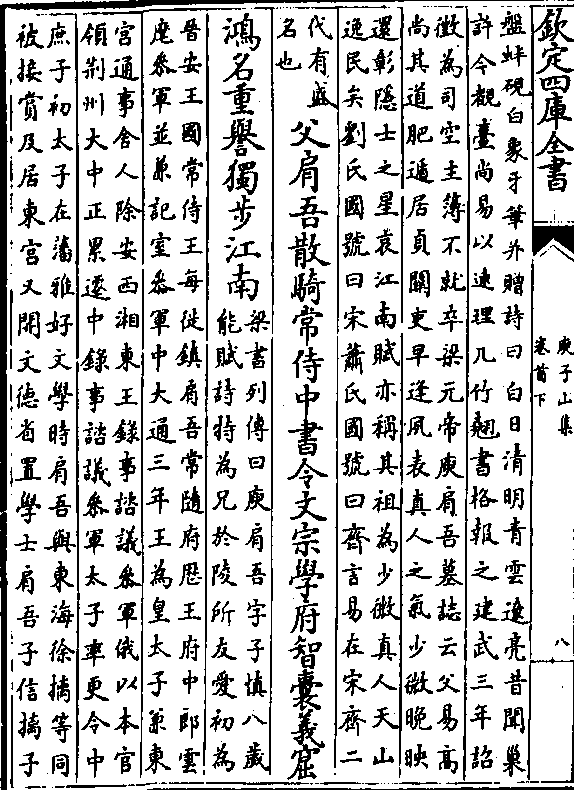 欽定四庫全書
庾子山集
卷首下
八
盤蚌硯白象牙筆并贈詩曰白日清明青雲遼亮昔聞巢
許今覩臺尚易以連理几竹翹書格報之建武三年詔
徴為司空主簿不就卒梁元帝庾肩吾墓誌云父易高
尚其道肥遁居貞關吏早逢風表真人之氣少微晚映
還彰隱士之星哀江南賦亦稱其祖為少微真人天山
逸民矣劉氏國號曰宋蕭氏國號曰齊言易在宋齊二
代有盛
名也
父肩吾散騎常侍中書令文宗學府智囊義窟
鴻名重譽獨步江南
梁書列傳曰庾肩吾字子慎八歲
能賦詩特為兄於陵所友愛初為
晉安王國常侍王每徙鎮肩吾常隨府歴王府中郎雲
麾叅軍並兼記室叅軍中大通三年王為皇太子兼東
宮通事舍人除安西湘東王錄事諮議叅軍俄以本官
領荆州大中正累遷中錄事諮議叅軍太子率更令中
庶子初太子在藩雅好文學時肩吾與東海徐摛等同
被接賞及居東宮又開文德省置學士肩吾子信摛子